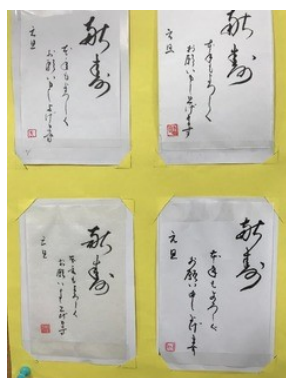 献寿
本年もよろしく
お願い申し上げます
元旦
献寿
本年もよろしく
お願い申し上げます
元旦
献寿
本年もよろしく
お願い申し上げます
元旦
献寿
本年もよろしく
お願い申し上げます
元旦